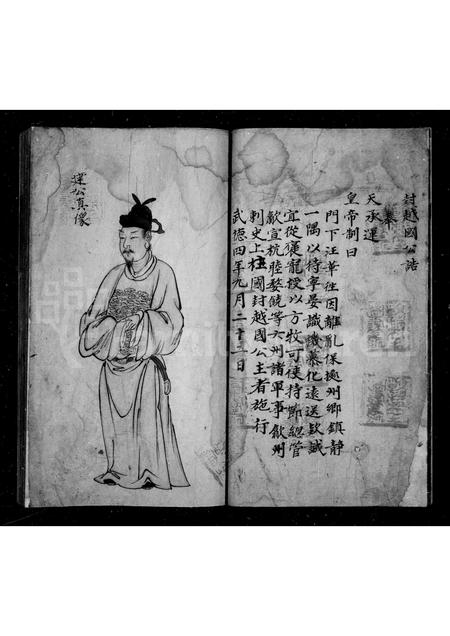 封越國公誥
奉
天承運
皇帝制曰
門下汪華往因離亂保據州鄉鎮靜
一隅以待寧晏識機慕化遠送欵誠
宜從褒寵授以方牧可使持節總管
歙宣杭睦婺饒等六州諸軍事歙州
刺史上柱國封越國公主者施行
武德四年九月二十二日
運公真像